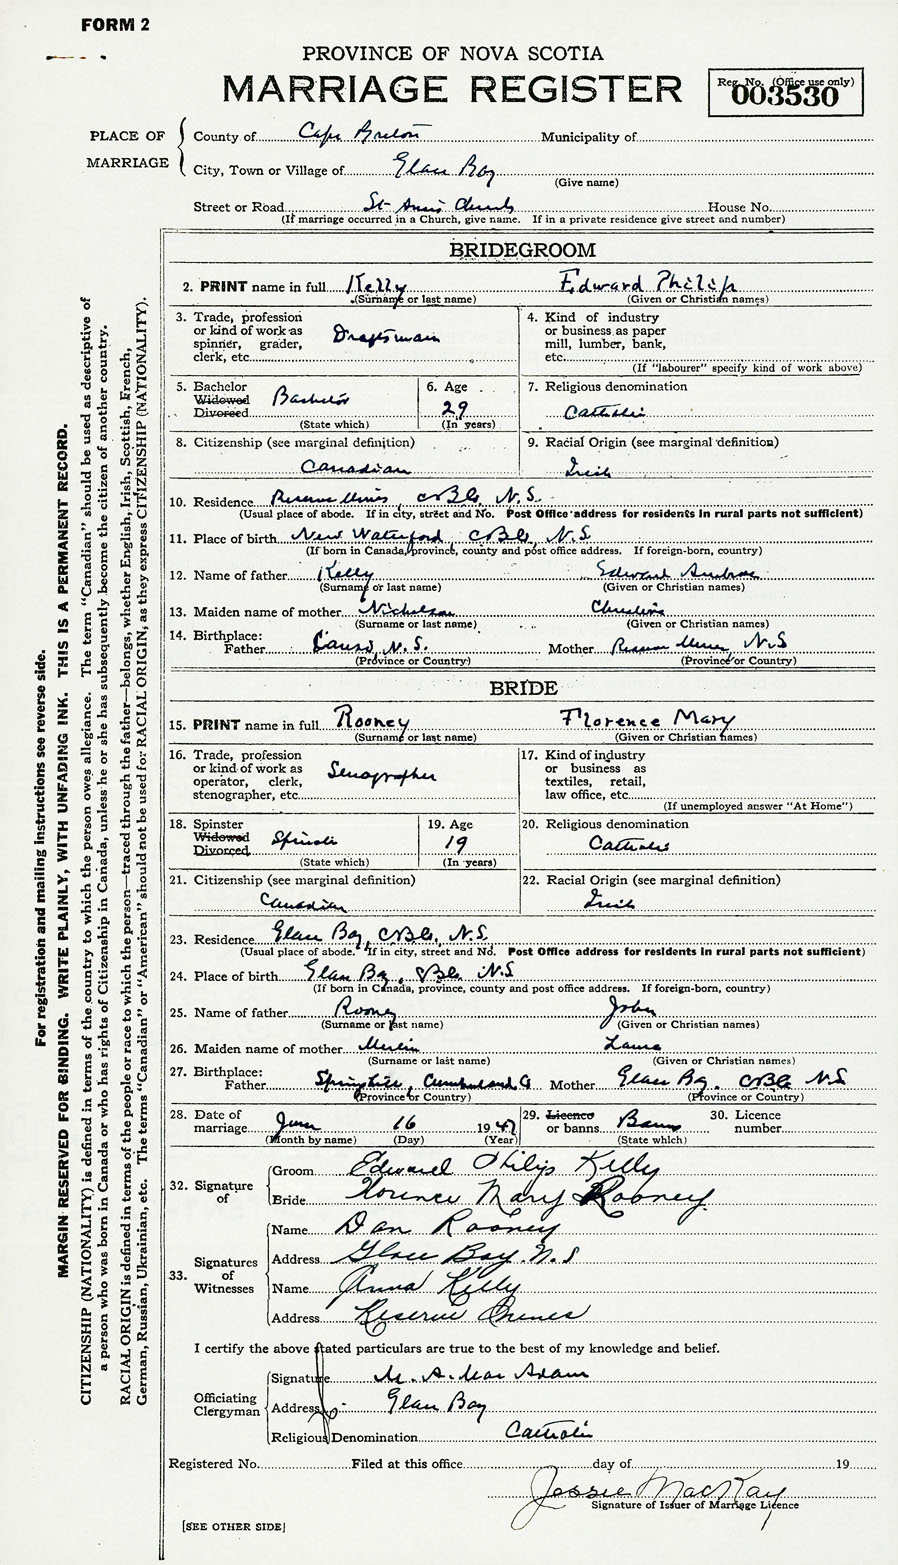 FORM 2
PROVINCE OF NOVA SCOTIA
MARRIAGE REGISTER
Reg. No. (Office use only)
003530
PLACE OF MARRIAGE
County of Cape Breton Municipality of
City, Town or Village of Glace Bay
(Give name)
Street or Road St Ann's Church House No.
(If marriage occurred in a Church, give name. If in a private residence give street and number)
BRIDEGROOM
2. PRINT name in full Kelly Edward Philip
(Surname or last name) (Given or Christian names)
3. Trade, profession or kind of work as spinner, grader, clerk, etc. Draftsman
4. Kind of industry or business as paper mill, lumber, bank, etc.
(If "labourer" specify kind of work above)
5. Bachelor Widowed Divorced Bachelor
(State which)
6. Age 29
(In years)
7. Religious denomination Catholic
8. Citizenship (see marginal definition) Canadian
9. Racial Origin (see marginal definition) Irish
10. Residence Reserve Mines, C B Co, N.S.
(Usual place of abode. If in city, street and No. Post Office address for residents in rural parts not sufficient)
11. Place of birth New Waterford, C B Co, N.S
(If born in Canada, province, county and post office address. If foreign-born, country)
12. Name of father Kelly Edward Ambrose
(Surname or last name) (Given or Christian names)
13. Maiden name of mother Nicholson Christina
(Surname or last name) (Given or Christian names)
14. Birthplace:
Father N.S. Mother Reserve Mines, N.S
(Province or Country) (Province or Country)
BRIDE
15. PRINT name in full Rooney Florence Mary
(Surname or last name) (Given or Christian names)
16. Trade, profession or kind of work as operator, clerk, stenographer, etc. Senographer
17. Kind of industry or business as textiles, retail, law office, etc.
(If unemployed answer "At Home")
18. Spinster Widowed Divorced Spinster
(State which)
19. Age 19
(In years)
20. Religious denomination Catholic
21. Citizenship (see marginal definition) Canadian
22. Racial Origin (see marginal definition) Irish
23. Residence Glace Bay, C B Co, N.S.
(Usual place of abode. If in city, street and No. Post Office address for residents in rural parts not sufficient)
24. Place of birth Glace Bay, C B Co N.S
(If born in Canada, province, county and post office address. If foreign-born, country)
25. Name of father Rooney John
(Surname or last name) (Given or Christian names)
26. Maiden name of mother Laura
(Surname or last name) (Given or Christian names)
27. Birthplace:
Father Springhill, Cumberland Co Mother Glace Bay. C B Co N S
(Province or Country) (Province or Country)
28. Date of marriage June 16 1947
(Month by name) (Day) (Year)
29. Licence or banns Banns
(State which)
30. Licence number
32. Signature of
Groom Edward Philip Kelly
Bride Florence Mary Rooney
33. Signatures of Witnesses
Name Dan Rooney
Address Glace Bay. N.S
Name Anna Kelly
Address Reserve Mines
I certify the above stated particulars are true to the best of my knowledge and belief.
Officiating Clergyman
Signature M. A. Mac Adam
Address Glace Bay
Religious Denomination Catholic
Registered No. Filed at this office day of 19
Jessie MacKay
Signature of Issuer of Marriage Licence
[SEE OTHER SIDE]
For registration and mailing instructions see reverse side.
MARGIN RESERVED FOR BINDING. WRITE PLAINLY, WITH UNFADING INK. THIS IS A PERMANENT RECORD.
CITIZENSHIP (NATIONALITY) is defined in terms of the country to which the person owes allegiance. The term "Canadian" should be used as descriptive of
a person who was born in Canada or who has rights of Citizenship in Canada, unless he or she has subsequently become the citizen of another country.
RACIAL ORIGIN is defined in terms of the people or race to which the person—traced through the father—belongs, whether English, Irish, Scottish, French,
German, Russian, Ukrainian, etc. The terms "Canadian" or "American" should not be used for RACIAL ORIGIN, as they express CITIZENSHIP (NATIONALITY).